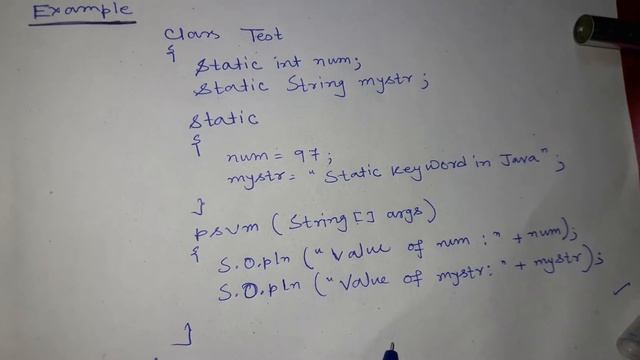 Example
Class Test
{
static int num;
static String mystr;
static
{
num = 97;
mystr = "Static keyword in Java";
}
psvm (String [] args)
{
S.O.pln ("Value of num :" + num);
S.O.pln ("Value of mystr: " + mystr);
}